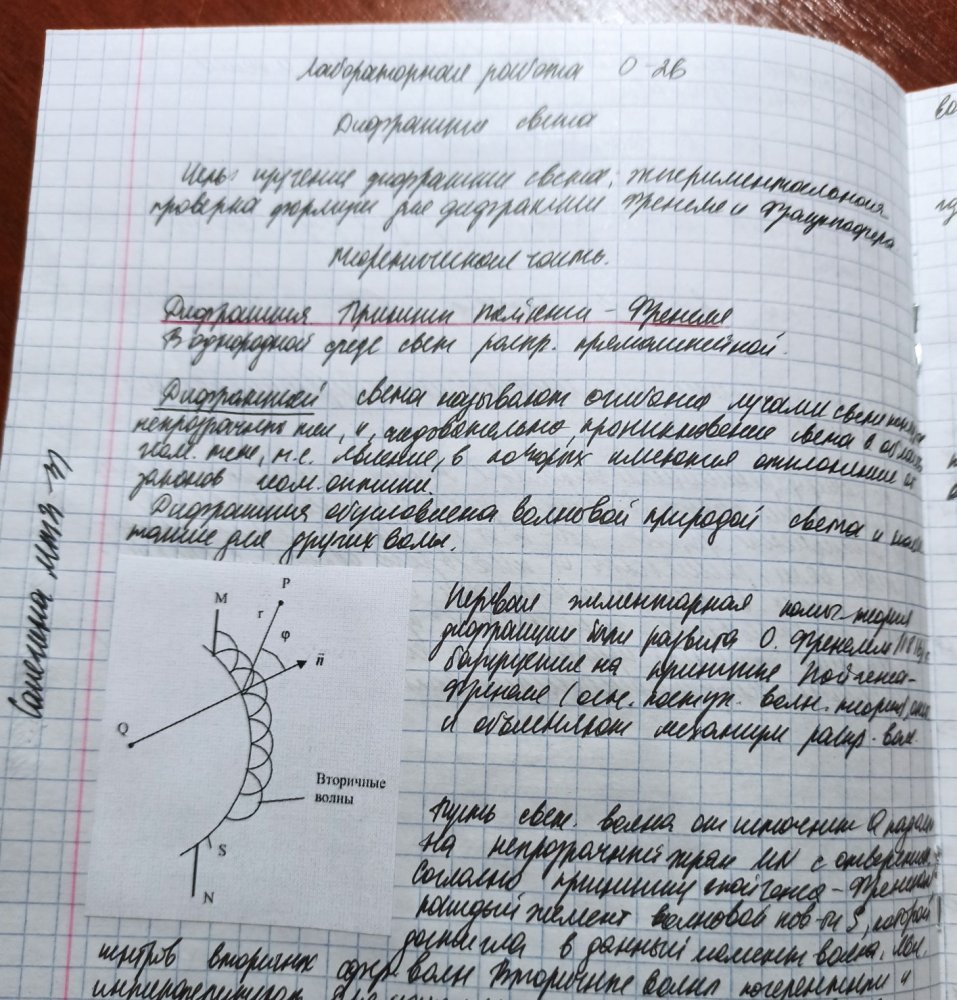 Лабораторная работа О-2в
Дифракция света
Цель: изучение дифракции света, экспериментальная
проверка формулы для дифракции Френеля и Фраунгофера.
Теоретическая часть.
Дифракция. Принцип Гюйгенса - Френеля
В однородной среде свет распр. прямолинейной.
Дифракцией света называют огибание лучами света
непрозрачных тел, и, следовательно, проникновение света в область
геом. тени, т.е. явление, в которых имеются отклонение от
законов геом. оптики.
Дифракция обусловлена волновой природой света и
также для других волн.
Первая элементарная теория
дифракции была развита О. Френелем
базируясь на принципе Гюйгенса-
Френеля (осн. постул. волн. теории),
и объясняют механизм распр. волн
M
P
r
φ
n̄
Q
Вторичные
волны
S
N
Пусть свет. волна от источника Q
на непрозрачный экран MN с отверстием.
Согласно принципу Гюйгенса-Френеля
каждый элемент волновой пов-ти S, которой
достигла в данный момент волна,
центров вторичных сфер. волн. Вторичные волны когерентны и
Самекина